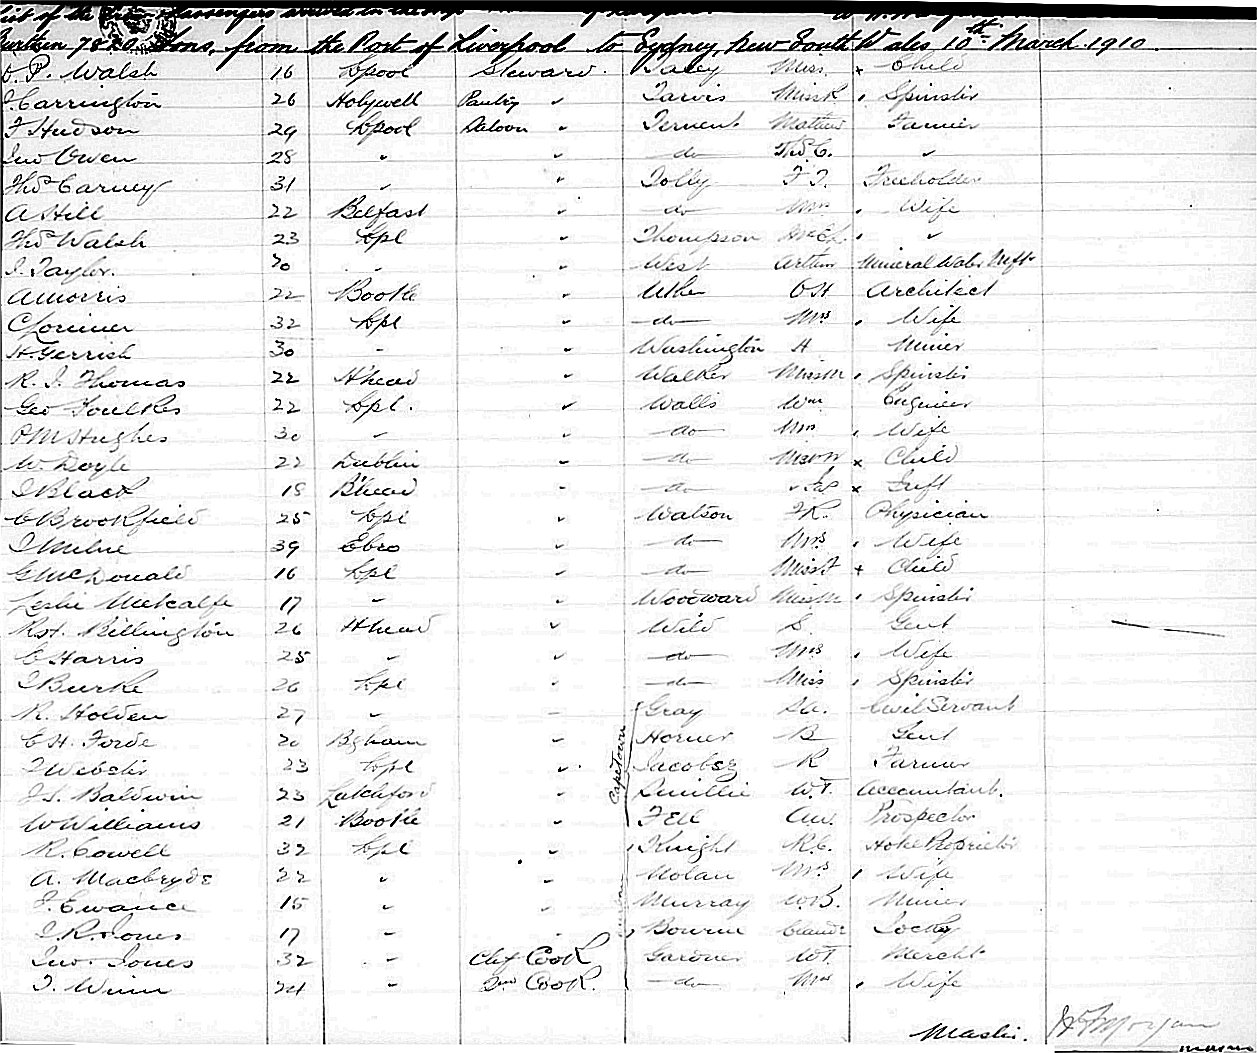 List of the Crew Passengers arrived in the
Burthen 7820 Tons, from the Port of Liverpool to Sydney, New South Wales, 10th March 1910.
P. Walsh 16 L'pool Steward. Miss × Child
J Carrington 26 Holywell Pantry " Jarvis Miss K. Spinster
F Hudson 29 L'pool Saloon " Ternent Mathew Farmer
Jno Owen 28 " " do Thos C. "
Thos Carney 31 " " Tolly F. J. Freeholder
A Hill 22 Belfast " do Mrs Wife
Thos Walsh 23 Lpl " Thompson "
J. Taylor. " " West Arthur Mineral Water Mnft
A Morris 22 Bootle " Uther Architect
C Lorimer 32 Lpl " do Mrs Wife
H. Gerrish 30 " " Washington H Miner
R. J. Thomas 22 " Walker Miss M Spinster
Geo Foulkes 22 Lpl. " Walls Wm Engineer
P M Hughes 30 " " do Mrs Wife
W. Doyle 22 Dublin " do × Child
J Black 18 B'head " do × Inft
C Brookfield 25 Lpl " Watson J. R. Physician
J Milne 39 Ebro " do Mrs Wife
G McDonald 16 Lpl " do × Child
Leslie Metcalfe 17 " " Woodward Miss M Spinster
Rt. Billington 26 " Wild S. Gent
C Harris 25 " " do Mrs Wife
J Burke 26 Lpl " do Miss Spinster
R. Holden 27 " " Gray Civil Servant
C H. Forde 20 B'gham " Horner B Gent
J Webster 23 Lpl " Jacobsz R Farmer
J. S. Baldwin 23 Latchford " Smillie W. F. Accountant.
Capetown
W Williams 21 Bootle " Fell A W. Prospector
R. Cowell 32 Lpl " Knight R. C. Hotel Proprietor
A. Macbryde 22 " " Nolan Mrs Wife
J. Ewance 15 " " Murray W. B. Miner
J. R. Jones 17 " " Bourne Claude Jockey
Jno. Jones 32 " Chf Cook Gardner W F. Mercht
J. Winn 24 " 2nd Cook. do Mrs Wife
Master. Morgan